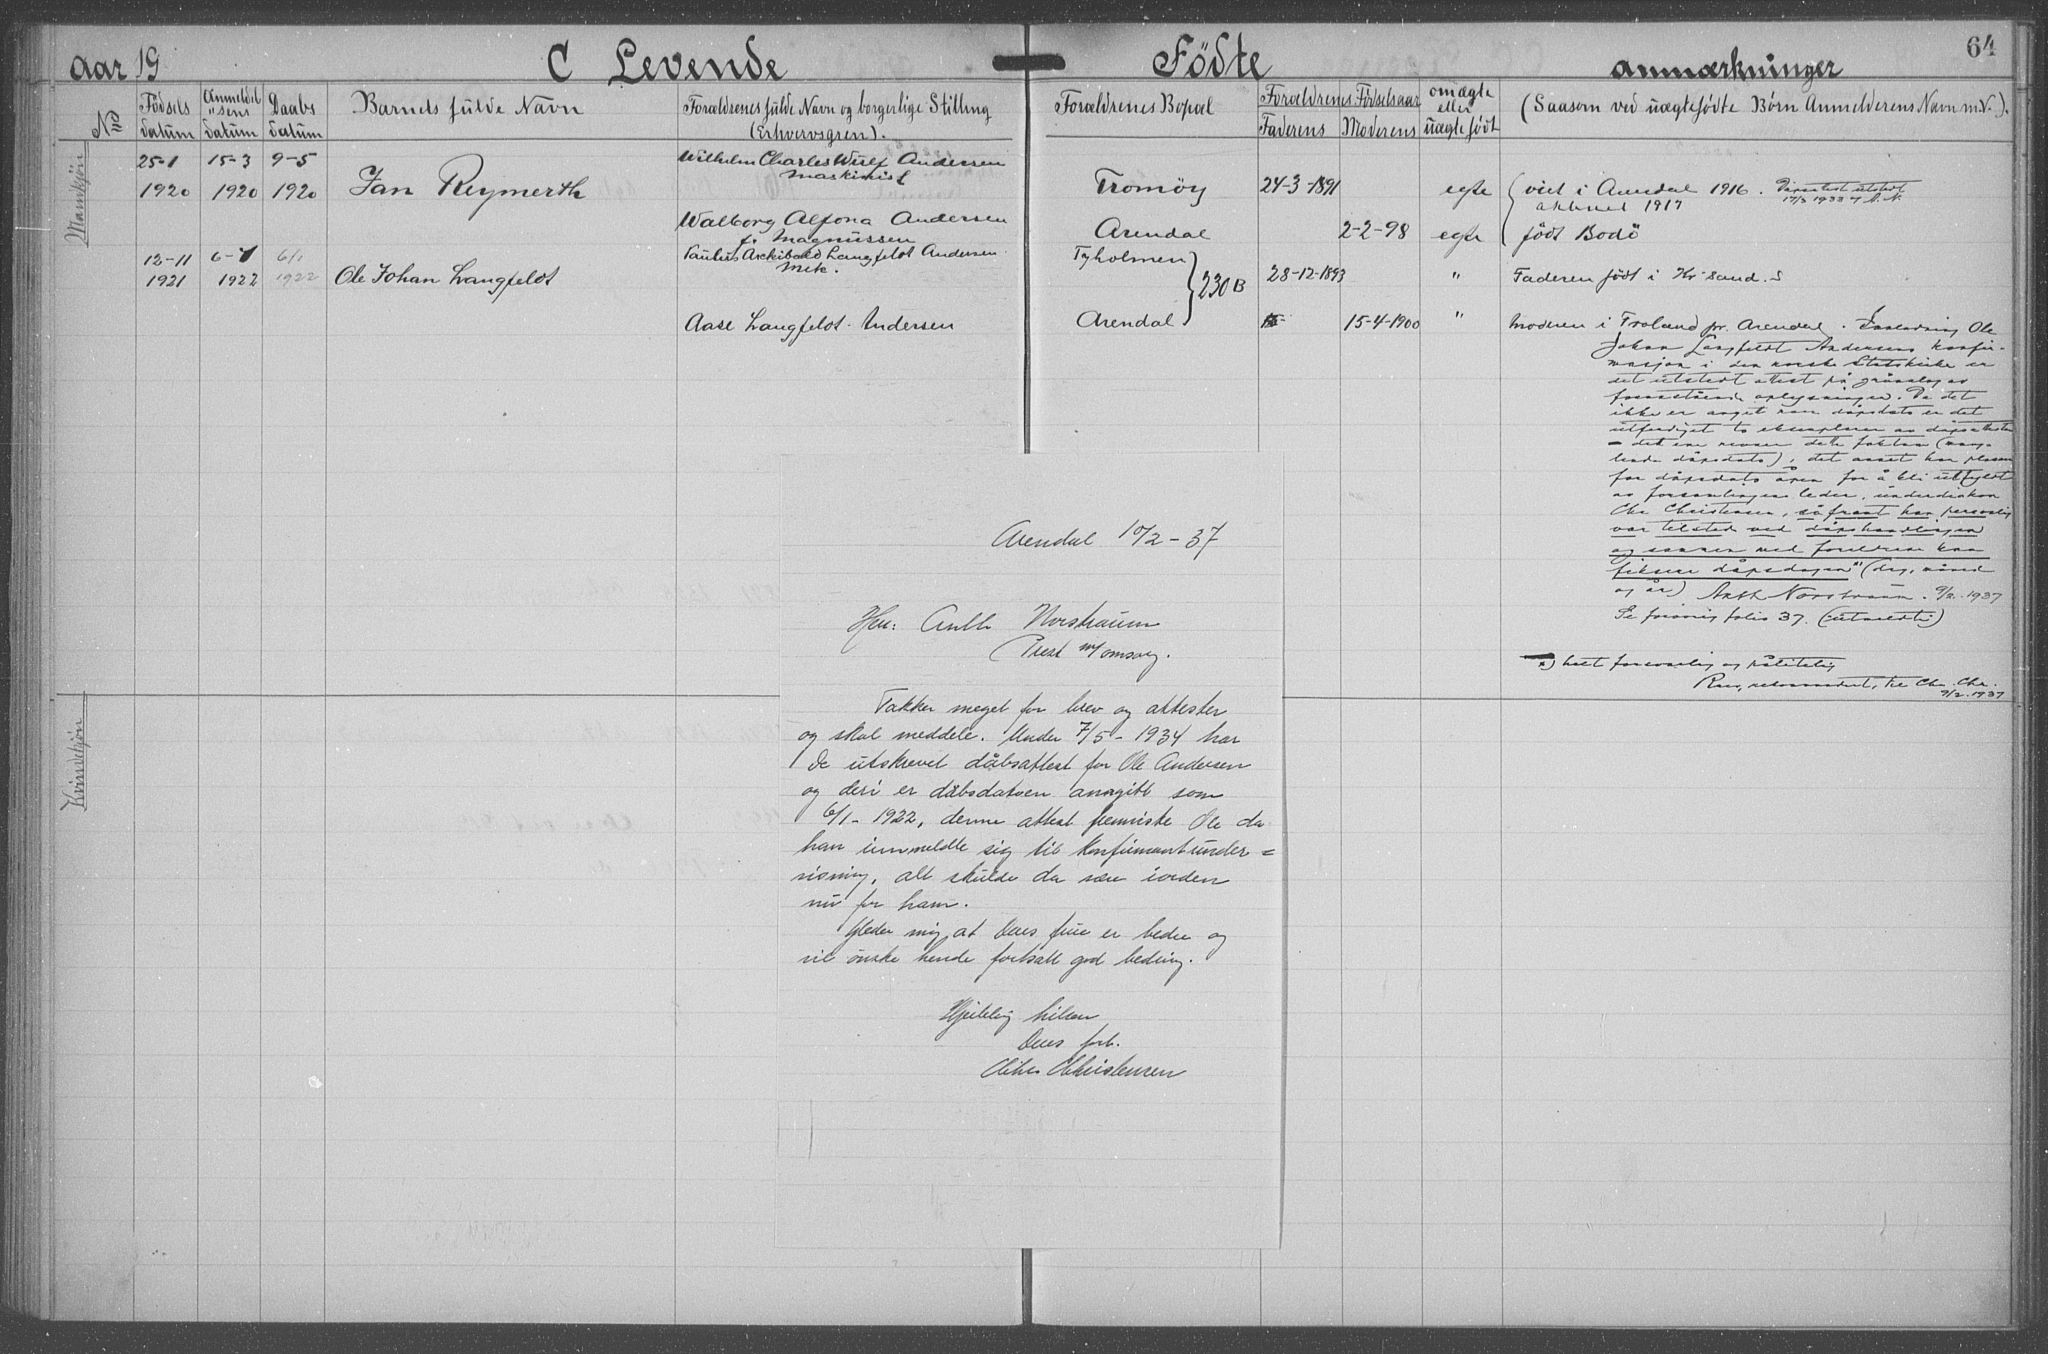 Aar 19
C Levende Fødte
Anmærkninger
64
No
Fødsels datum
Anmeldelsens datum
Daabs datum
Barnets fulde Navn
Forældrenes fulde Navn og borgerlige Stilling
(Erhvervsgren).
Forældrenes Bopæl
Forældrenes Fødselsaar
Faderens
Moderens
omægte eller uægtefødt
(Saasom ved uægtefødte Børn Anmelderens Navn m.V.).
Mandkjøn
25-1 15-3 9-5
1920 1920 1920
Jan Reymerth
Wilhelm Charles Wulf Andersen
maskinist
Tromøy
24-3-1891
egte
viet i Arendal 1916. Dåpsattest utstedt
17/3 1933
aktivert 1917
Walborg Alfona Andersen
f. Magnussen
Arendal
2-2-98
egte
født Bodö
12-11 6-1 6/1
1921 1922 1922
Ole Johan Langfeldt
Paulus Archibald Langfeldt Andersen
Mek.
Tyholmen
230 B
28-12-1893
"
Faderen født i Kr-sand. S
Aase Langfeldt-Andersen
Arendal
15-4-1900
"
Moderen i Froland pr. Arendal. I anledning Ole
Johan Langfeldt Andersens konfir-
masjon i den norske Statskirke er
det utstedt attest på grunnlag av
foranstående oplysninger. Da det
ikke er angit noen dåpsdato er det
utferdiget to eksemplarer av dåpsattesten
- det ene nevner dette faktum (mang-
lende dåpsdato), det annet har plassen
for dåpsdato åpen for å bli utfyldt
av forsamlingens leder, underdiakon
Chr Christensen, såfremt han personlig
var tilstede ved dåpshandlingen
og sammen med foreldrene kan
fiksere dåpsdagen" (dag, måned
og år) Anth Norstraum. 9/2-1937
Se forøvrig folio 37. (utmeldte)
x) helt forsvarlig og pålitelig
Rev. rekommandert, til Chr. Chr.
9/2.1937
Kvindekjøn
Arendal 10/2-37
Hrr: Anth Norstraum
Prest Tromsøy.
Takker meget for brev og attester
og skal meddele. Under 7/5-1934 har
De utskrevet dåbsattest for Ole Andersen
og deri er dåbsdatoen anngitt som
6/1-1922, denne attest fremviste Ole da
han innmeldte sig til konfirmantunder=
visning, alt skulde da være iorden
nu for ham.
Gleder mig at Deres frue er bedre og
vil ønske hende fortsatt god bedring.
Hjertelig hilsen
Deres forb.
Chr. Christensen